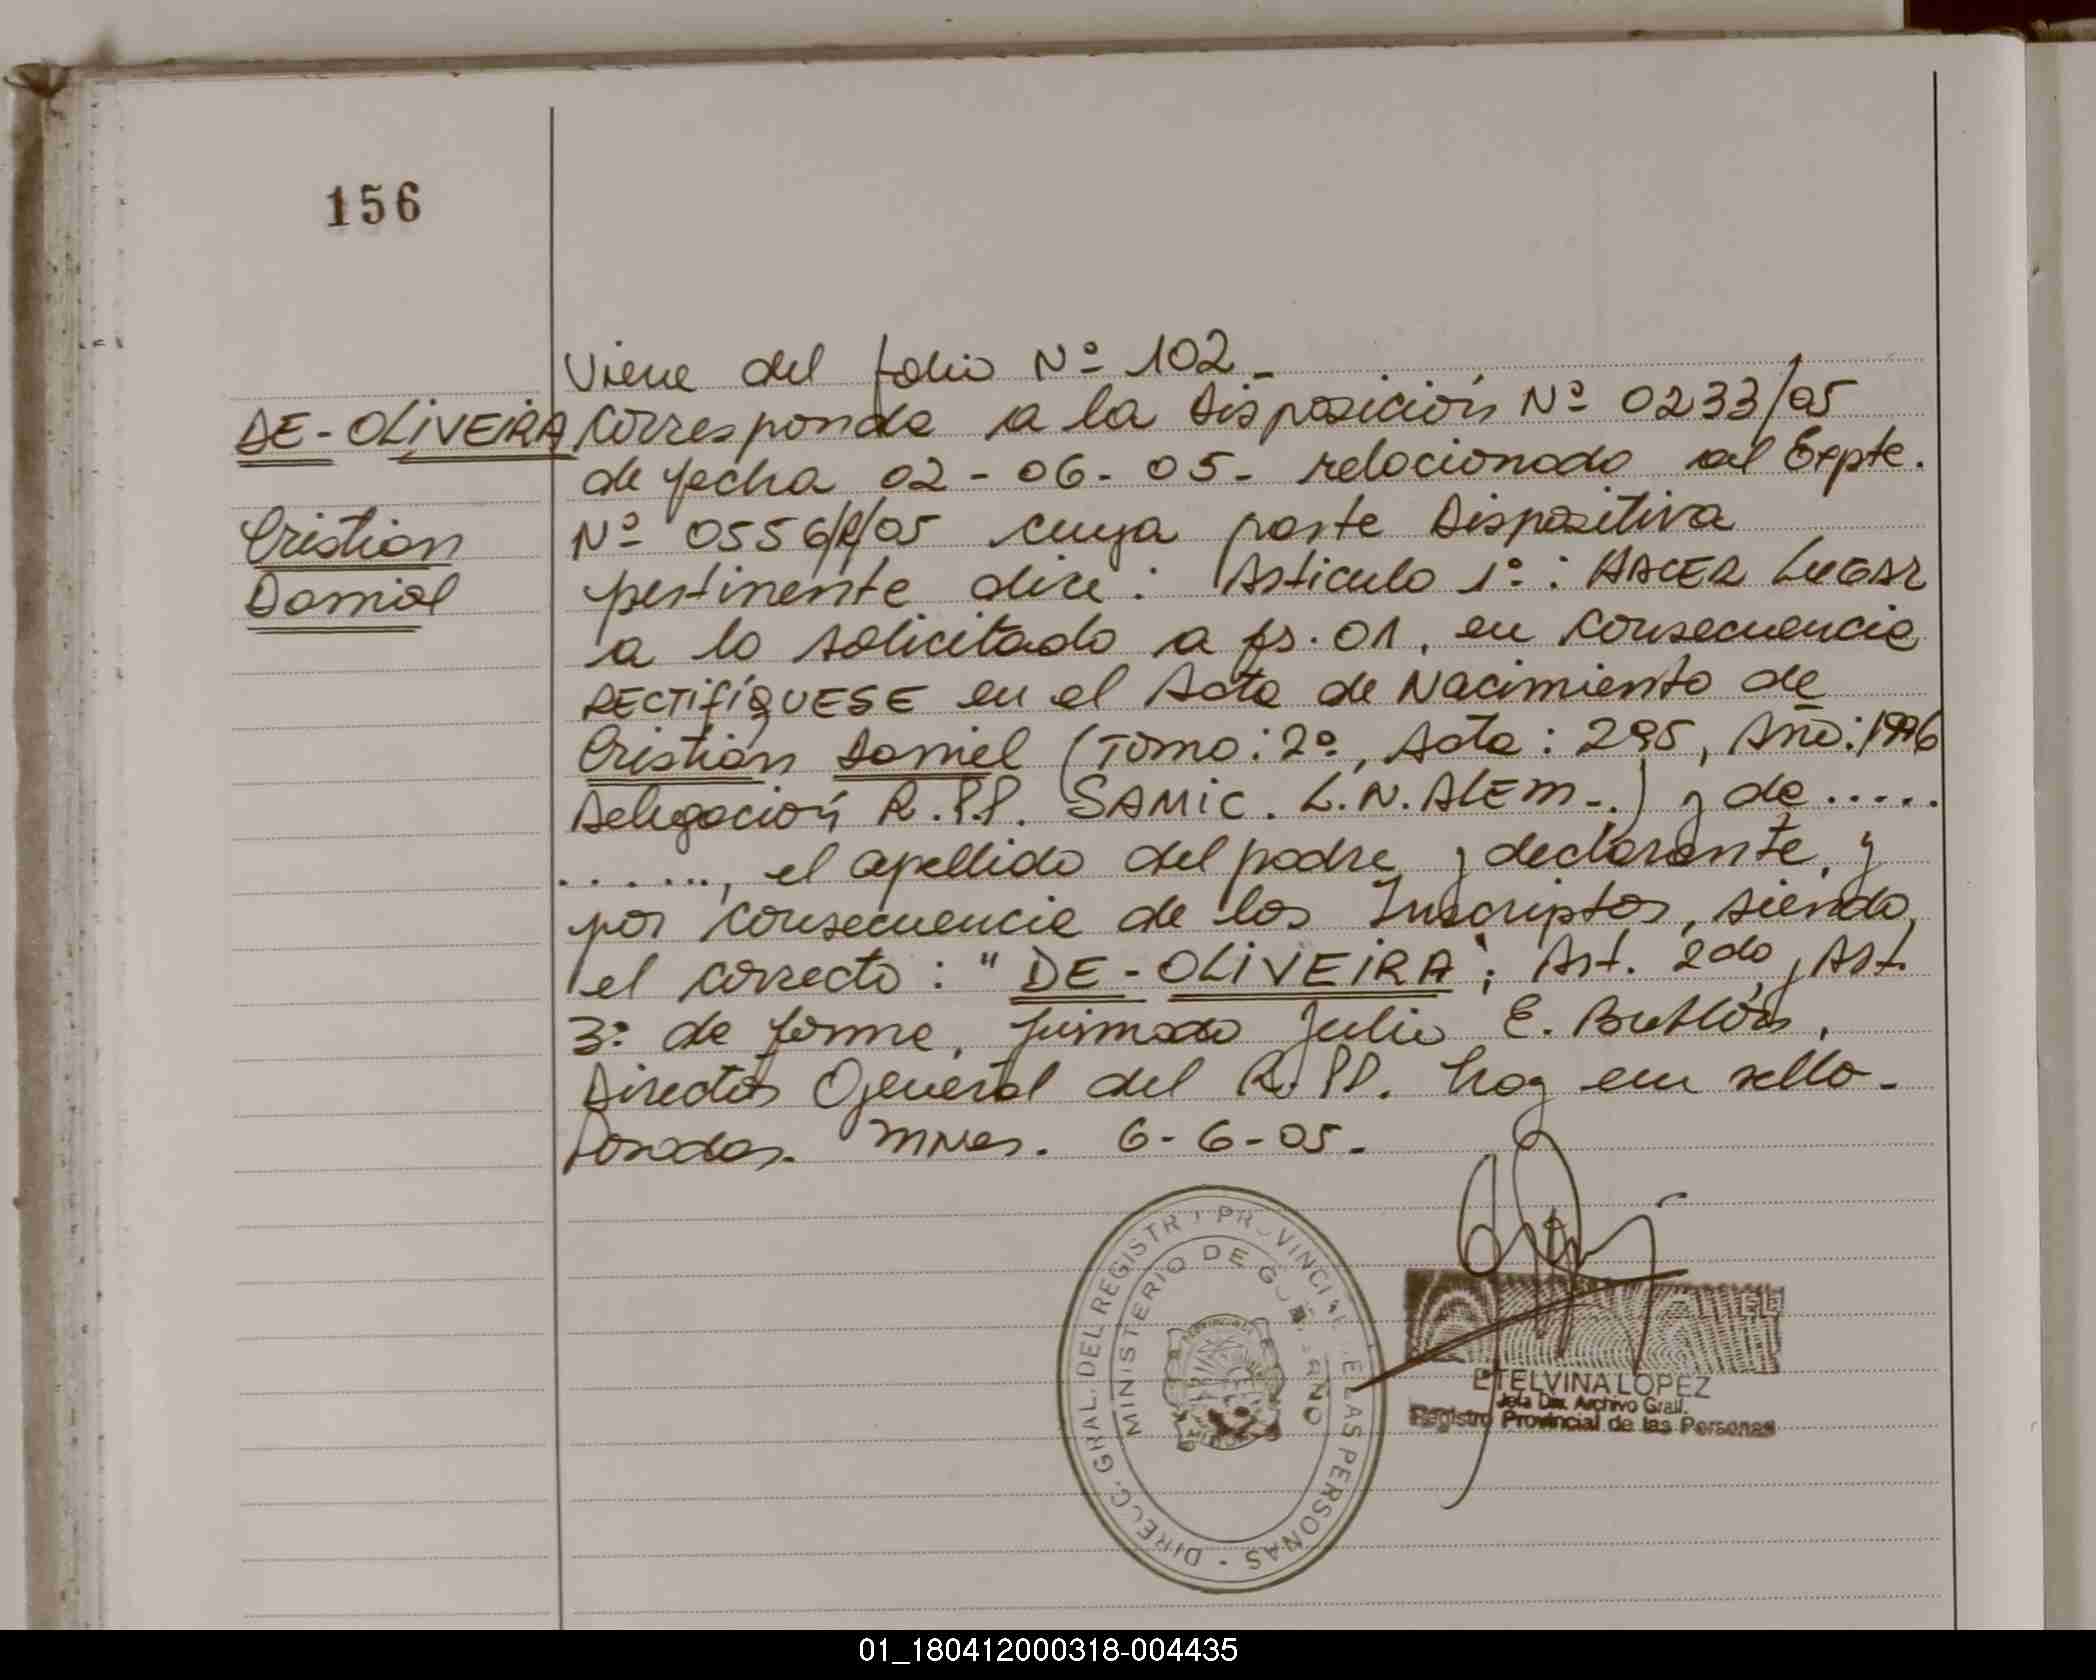 156
Viene del folio Nº 102_
DE-OLIVEIRA Corresponde a la Disposición Nº 0233/05
de fecha 02-06-05- relacionado al Expte.
Cristian Nº 0556/R/05 cuya parte Dispositiva
Daniel pertinente dice: Articulo 1º: HACER LUGAR
a lo solicitado a fs. 01, en consecuencia
RECTIFÍQUESE en el Acta de Nacimiento de
Cristian Daniel (Tomo: 2º, Acta: 295, Año: 1996
Delegación R.P.P. SAMIC. L.N.ALEM-.) y de .....
......, el apellido del padre y declarante, y
por consecuencia de los Inscriptos, siendo
el correcto: "DE-OLIVEIRA"; Art. 2do, Art.
3º de forma, firmado Julio E.
Director General del R.PP. hay un sello-
Posadas. Mnes. 6-6-05-
DIRECC. GRAL. DEL REGISTRO PROVINCIAL DE LAS PERSONAS -
MINISTERIO DE GOBIERNO
ETELVINA LOPEZ
Jefa Dto. Archivo Gral.
Registro Provincial de las Personas
01_180412000318-004435